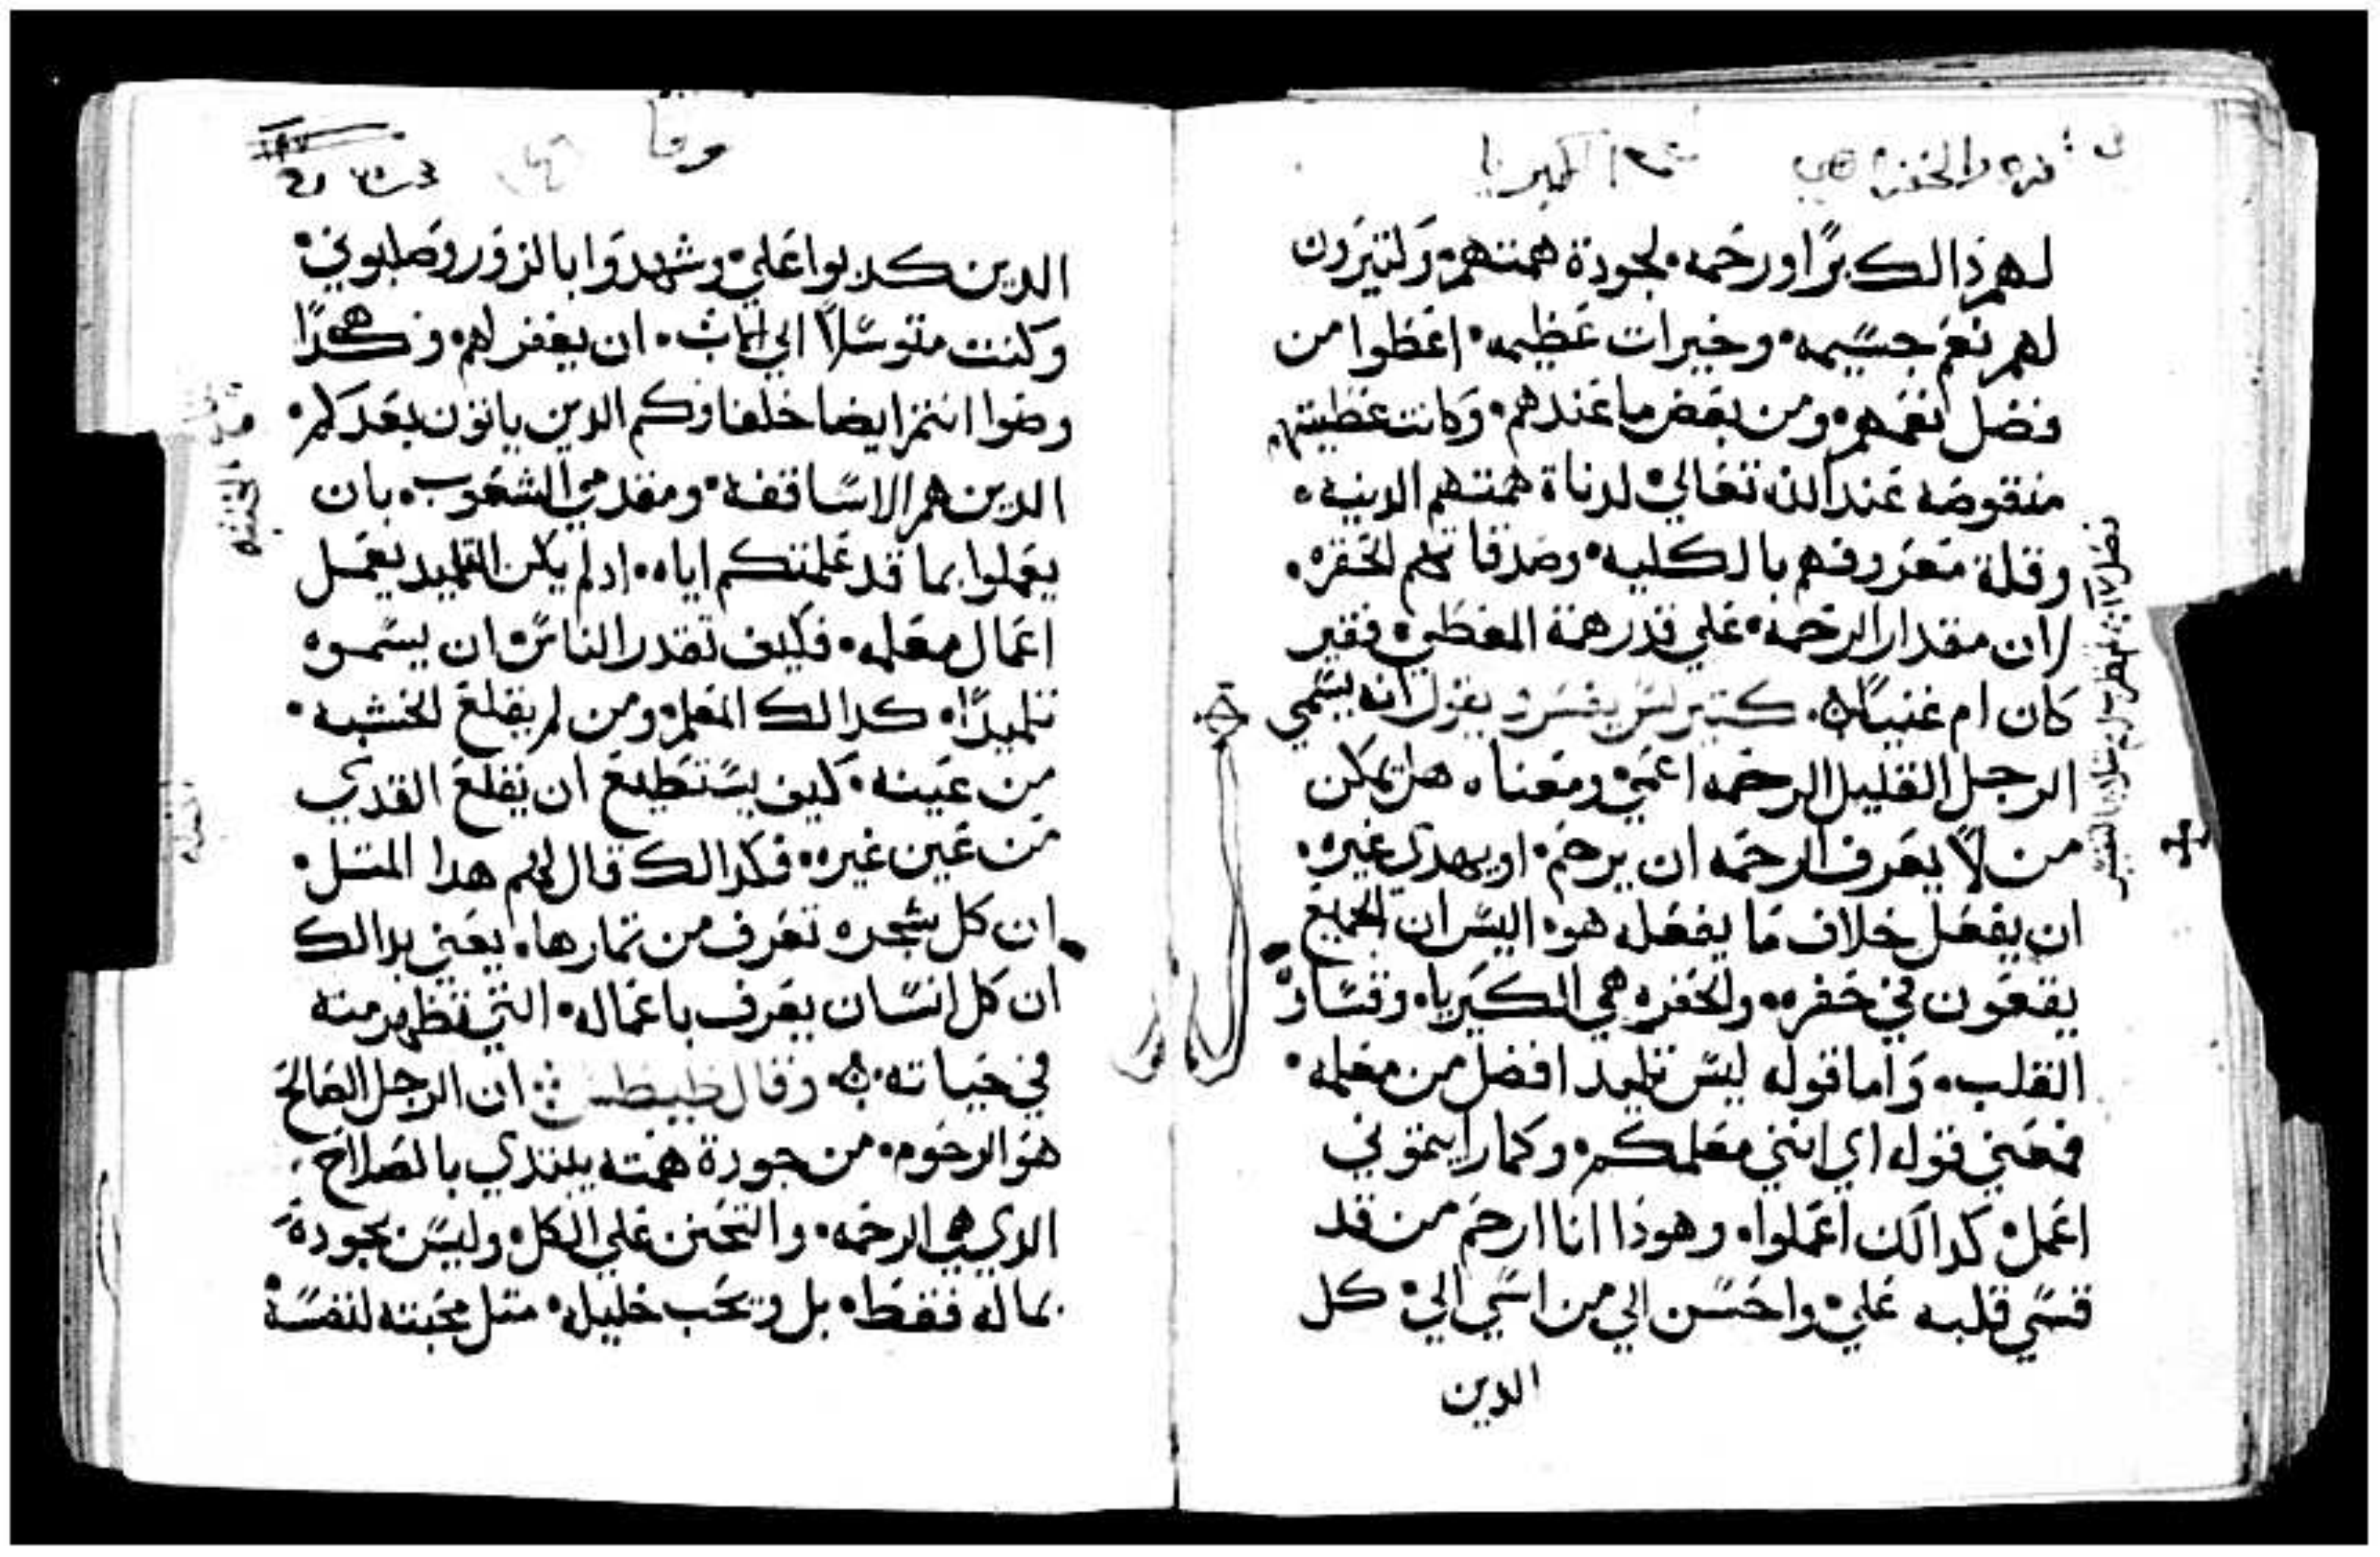 لهم ذالك برًا ورحمه لجودة همتهم ولتيرون
لهم نعم جسيمه وخيرات عظيمه اعطوا من
فضل نعمهم ومن بعض ما عندهم وكانت عطيتهم
منقوصه عند الله تعالي لدناة همتهم الدنيه
وقلة معروفهم بالكليه وصدقاتهم الحقره
لان مقدار الرحمه علي قدر همة المعطي فقير
كان ام غنيًا يفسر ويقول انه يسمي
الرجل القليل الرحمه اعمي ومعناه هل يمكن
من لا يعرف الرحمه ان يرحم او يهدي غيره
ان يفعل خلاف ما يفعله هو اليس ان الجميع
يقعون في حفره والحفره هي الكبريا وقساوة
القلب واما قوله ليس تلميد افضل من معلمه
فمعني قوله اي انني معلمكم وكما رايتموني
اعمل كدالك اعملوا وهوذا انا ارحم من قد
قسي قلبه علي واحسن الي من اسي الي كل
الدين
وقا
الدين كدبوا علي وشهدوا بالزور وصلبوني
وكنت متوسلاً الي الاب ان يغفر لهم وهكدا
وصوا انتم ايضا خلفاوكم الدين ياتون بعدكم
الدين هم الاساقفه ومقدمي الشعوب بان
يعملوا بما قد علمتكم اياه اد لم يكن التلميد يعمل
اعمال معلمه فكيف تقدر الناس ان يسموه
تلميدًا كدالك المعلم ومن لم يقلع الخشبه
من عينه كيف يستطيع ان يقلع القدي
من عين غيره فكدالك قال لهم هدا المتل
ان كل شجره تعرف من تمارها يعني بدالك
ان كل انسان يعرف باعماله التي تظهر منه
في حياته وقال طيطس ان الرجل الصالح
هو الرحوم من جودة همته يبتدي بالصلاح
الدي هي الرحمه والتحنن علي الكل وليس بجودة
بماله فقط بل ويحب خليله متل محبته لنفسه